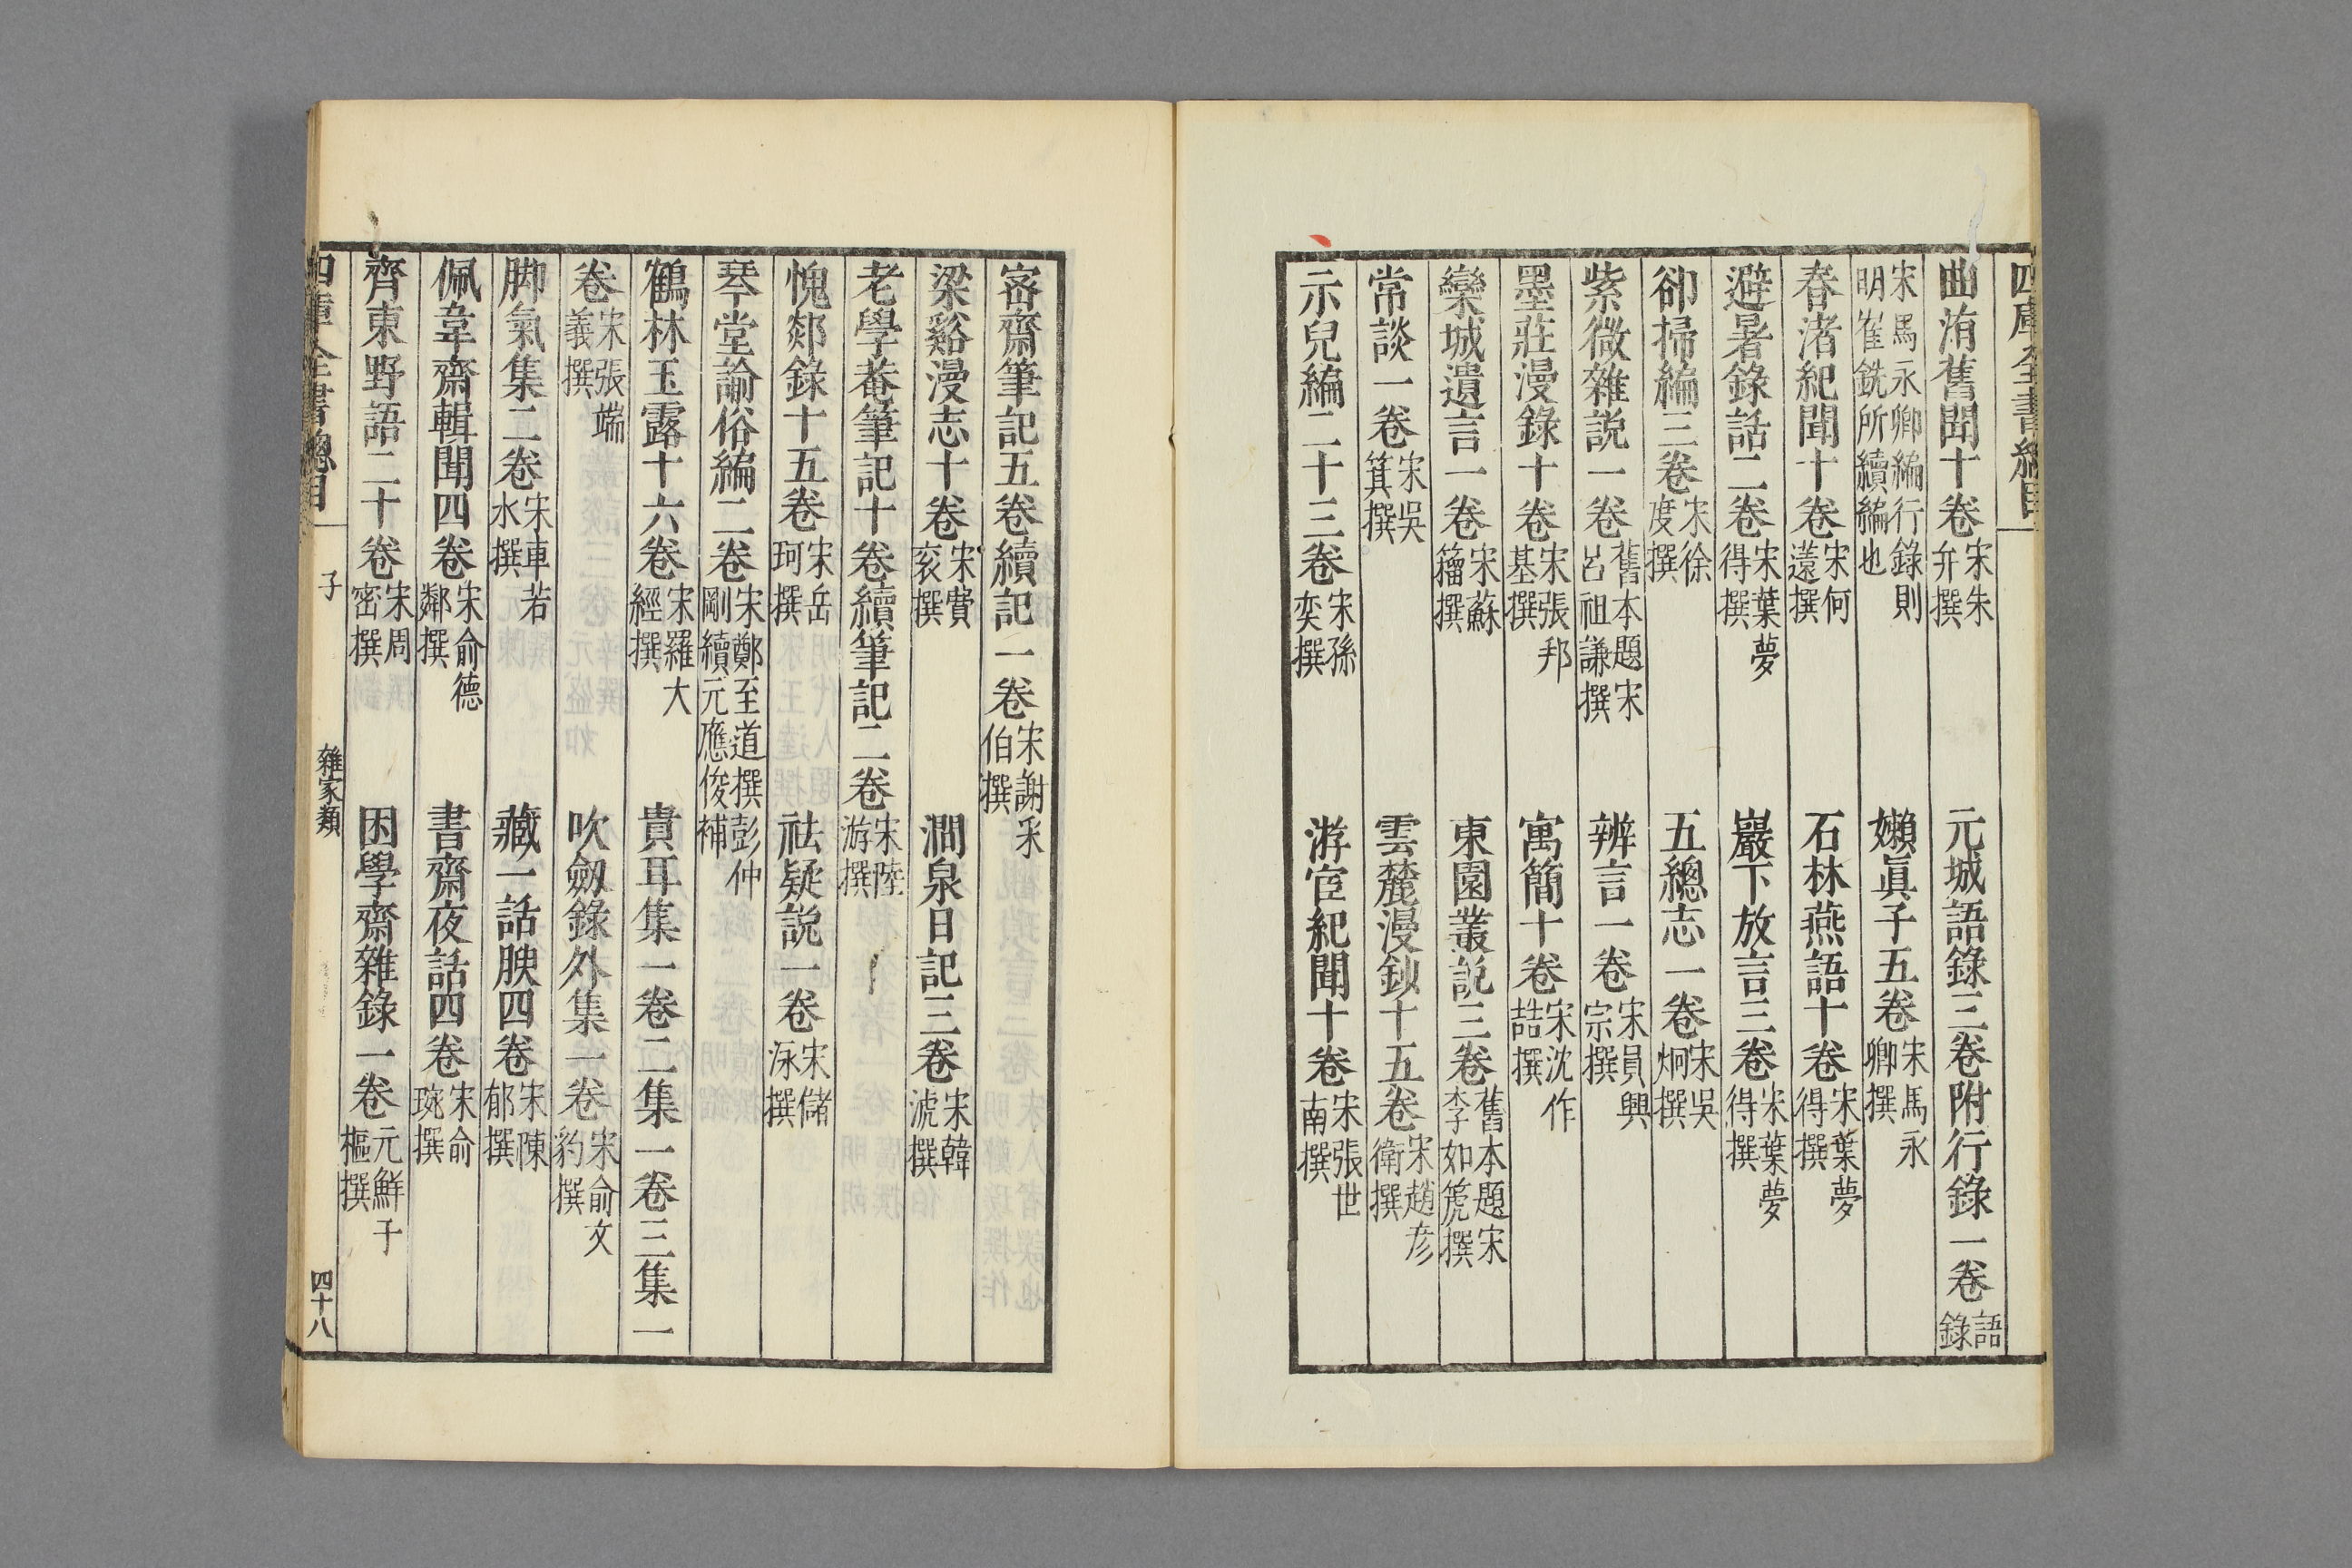 四庫全書總目
曲洧舊聞十卷宋朱弁撰 元城語錄三卷附行錄一卷語錄
宋馬永卿編行錄則明崔銑所續編也 嬾眞子五卷宋馬永卿撰
春渚紀聞十卷宋何薳撰 石林燕語十卷宋葉夢得撰
避暑錄話二卷宋葉夢得撰 巖下放言三卷宋葉夢得撰
卻掃編三卷宋徐度撰 五總志一卷宋吳炯撰
紫微雜說一卷舊本題宋呂祖謙撰 辨言一卷宋員興宗撰
墨莊漫錄十卷宋張邦基撰 寓簡十卷宋沈作喆撰
欒城遺言一卷宋蘇籀撰 東園叢說三卷舊本題宋李如箎撰
常談一卷宋吳箕撰 雲麓漫鈔十五卷宋趙彥衛撰
示兒編二十三卷宋孫奕撰 游宦紀聞十卷宋張世南撰
密齋筆記五卷續記一卷宋謝采伯撰
梁谿漫志十卷宋費袞撰 澗泉日記三卷宋韓淲撰
老學菴筆記十卷續筆記二卷宋陸游撰
愧郯錄十五卷宋岳珂撰 祛疑說一卷宋儲泳撰
琴堂諭俗編二卷宋鄭至道撰彭仲剛續元應俊補
鶴林玉露十六卷宋羅大經撰 貴耳集一卷二集一卷三集一
卷宋張端義撰 吹劔錄外集一卷宋俞文豹撰
脚氣集二卷宋車若水撰 藏一話腴四卷宋陳郁撰
佩韋齋輯聞四卷宋俞德鄰撰 書齋夜話四卷宋俞琬撰
齊東野語二十卷宋周密撰 困學齋雜錄一卷元鮮于樞撰
四庫全書總目 子 雜家類 四十八